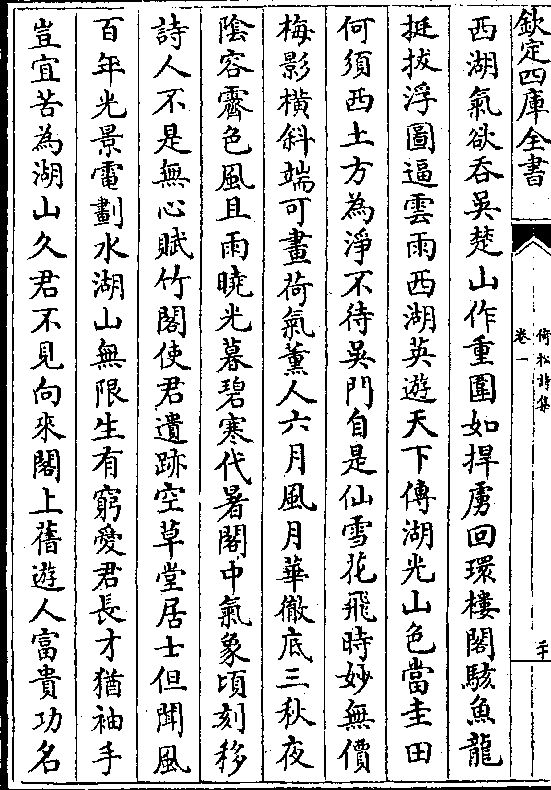 欽定四庫全書
倚松詩集
卷一
西湖氣欲吞吳楚山作重圍如捍虜回環樓閣駭魚龍
挺拔浮圖逼雲雨西湖英遊天下傳湖光山色當圭田
何須西土方為淨不待吳門自是仙雪花飛時妙無價
梅影橫斜端可畫荷氣薰人六月風月華徹底三秋夜
陰容霽色風且雨曉光暮碧寒代暑閣中氣象頃刻移
詩人不是無心賦竹閣使君遺跡空草堂居士但聞風
百年光景電劃水湖山無限生有窮愛君長才猶袖手
豈宜苦為湖山久君不見向來閣上舊遊人富貴功名